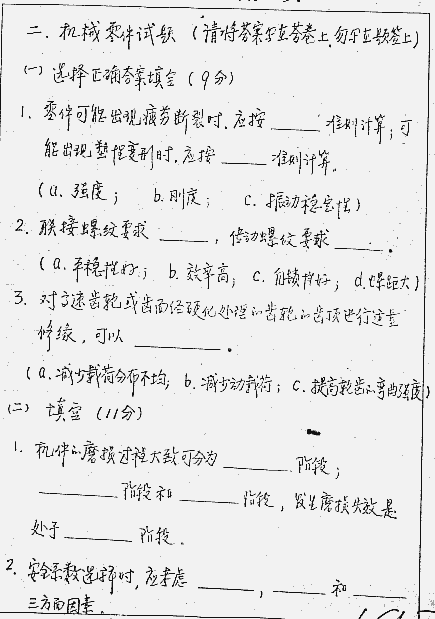 二. 机械零件试题 (请将答案写在答卷上,勿写在题签上)
(一) 选择正确答案填空 (9分)
1. 零件可能出现疲劳断裂时,应按____准则计算;可
能出现塑性变形时,应按____准则计算。
(a. 强度; b. 刚度; c. 振动稳定性)
2. 联接螺纹要求____,传动螺纹要求____.
(a. 平稳性好; b. 效率高; c. 自锁性好; d. 螺距大)
3. 对高速齿轮或齿面经硬化处理的齿轮的齿顶进行适当
修缘,可以________.
(a. 减少载荷分布不均; b. 减少动载荷; c. 提高轮齿的弯曲强度)
(二) 填空 (11分)
1. 机件的磨损过程大致可分为______阶段;
______阶段和______阶段,发生磨损失效是
处于______阶段.
2. 安全系数选择时,应考虑______,______和______
三方面因素.